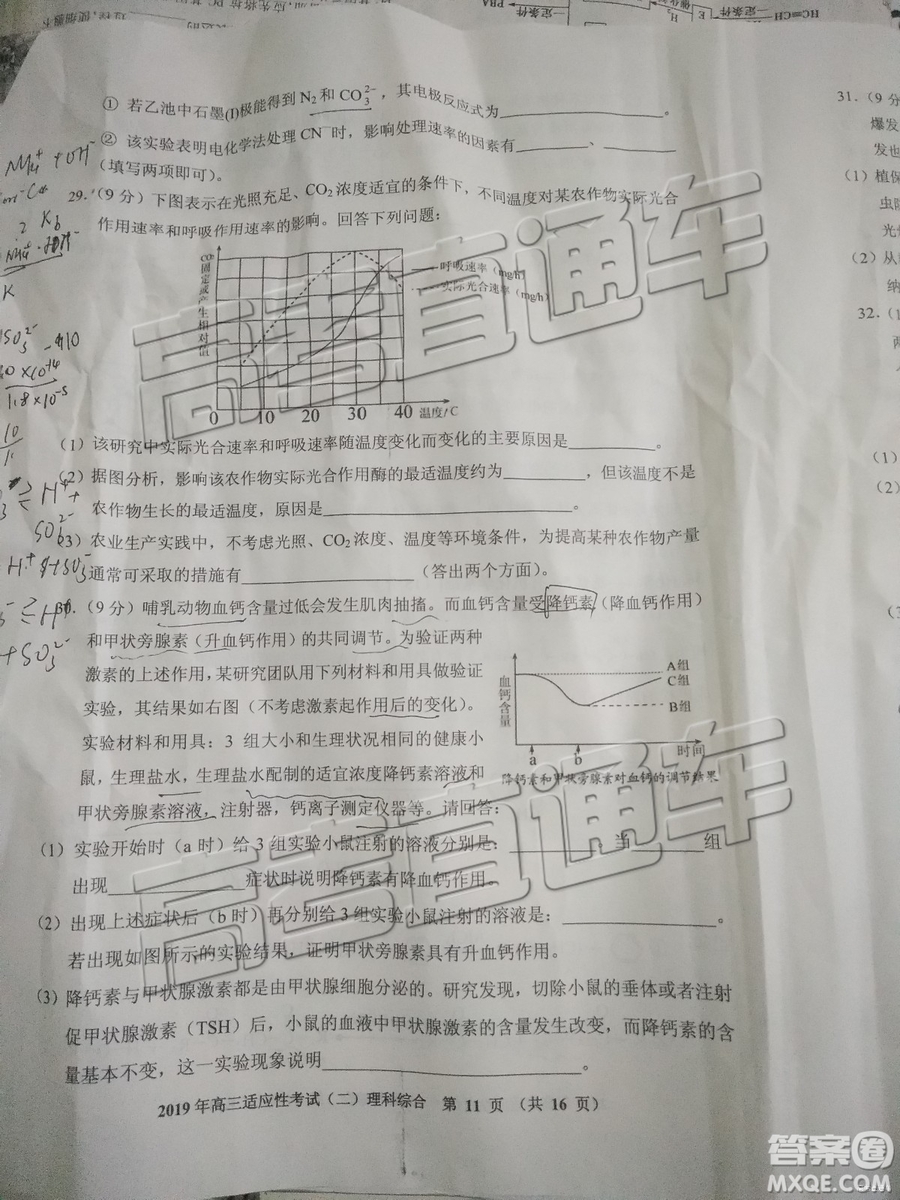 HC≡CH 一定条件 E H₂ 催化剂 一定条件 PBA
① 若乙池中石墨(I)极能得到 N₂ 和 CO₃²⁻，其电极反应式为__________。
② 该实验表明电化学法处理 CN⁻时，影响处理速率的因素有______、______
(填写两项即可)。
29.（9 分）下图表示在光照充足、CO₂ 浓度适宜的条件下，不同温度对某农作物实际光合
作用速率和呼吸作用速率的影响。回答下列问题：
CO₂固定或产生相对值
呼吸速率（mg/h）
实际光合速率（mg/h）
0 10 20 30 40 温度/C
（1）该研究中实际光合速率和呼吸速率随温度变化而变化的主要原因是__________。
（2）据图分析，影响该农作物实际光合作用酶的最适温度约为________，但该温度不是
农作物生长的最适温度，原因是__________________________。
（3）农业生产实践中，不考虑光照、CO₂ 浓度、温度等环境条件，为提高某种农作物产量
通常可采取的措施有________________（答出两个方面）。
30.（9 分）哺乳动物血钙含量过低会发生肌肉抽搐。而血钙含量受降钙素（降血钙作用）
和甲状旁腺素（升血钙作用）的共同调节。为验证两种
激素的上述作用，某研究团队用下列材料和用具做验证
实验，其结果如右图（不考虑激素起作用后的变化）。
实验材料和用具：3 组大小和生理状况相同的健康小
鼠，生理盐水，生理盐水配制的适宜浓度降钙素溶液和
甲状旁腺素溶液，注射器，钙离子测定仪器等。请回答：
血钙含量
A组
C组
B组
a b 时间
降钙素和甲状旁腺素对血钙的调节结果
（1）实验开始时（a 时）给 3 组实验小鼠注射的溶液分别是：____________当________组
出现______________症状时说明降钙素有降血钙作用。
（2）出现上述症状后（b 时）再分别给 3 组实验小鼠注射的溶液是：________________。
若出现如图所示的实验结果，证明甲状旁腺素具有升血钙作用。
（3）降钙素与甲状腺激素都是由甲状腺细胞分泌的。研究发现，切除小鼠的垂体或者注射
促甲状腺激素（TSH）后，小鼠的血液中甲状腺激素的含量发生改变，而降钙素的含
量基本不变，这一实验现象说明________________________。
2019 年高三适应性考试（二）理科综合 第 11 页 （共 16 页）
31.（9 分
爆发
发也
（1）植保
虫防
光
（2）从
纳
32.（1
（1）
（2）
（3）
NH₄⁺ + OH⁻
K
1.8×10⁻⁵
SO₃²⁻
高考直通车
高考直通车
答案圈
MXQE.COM